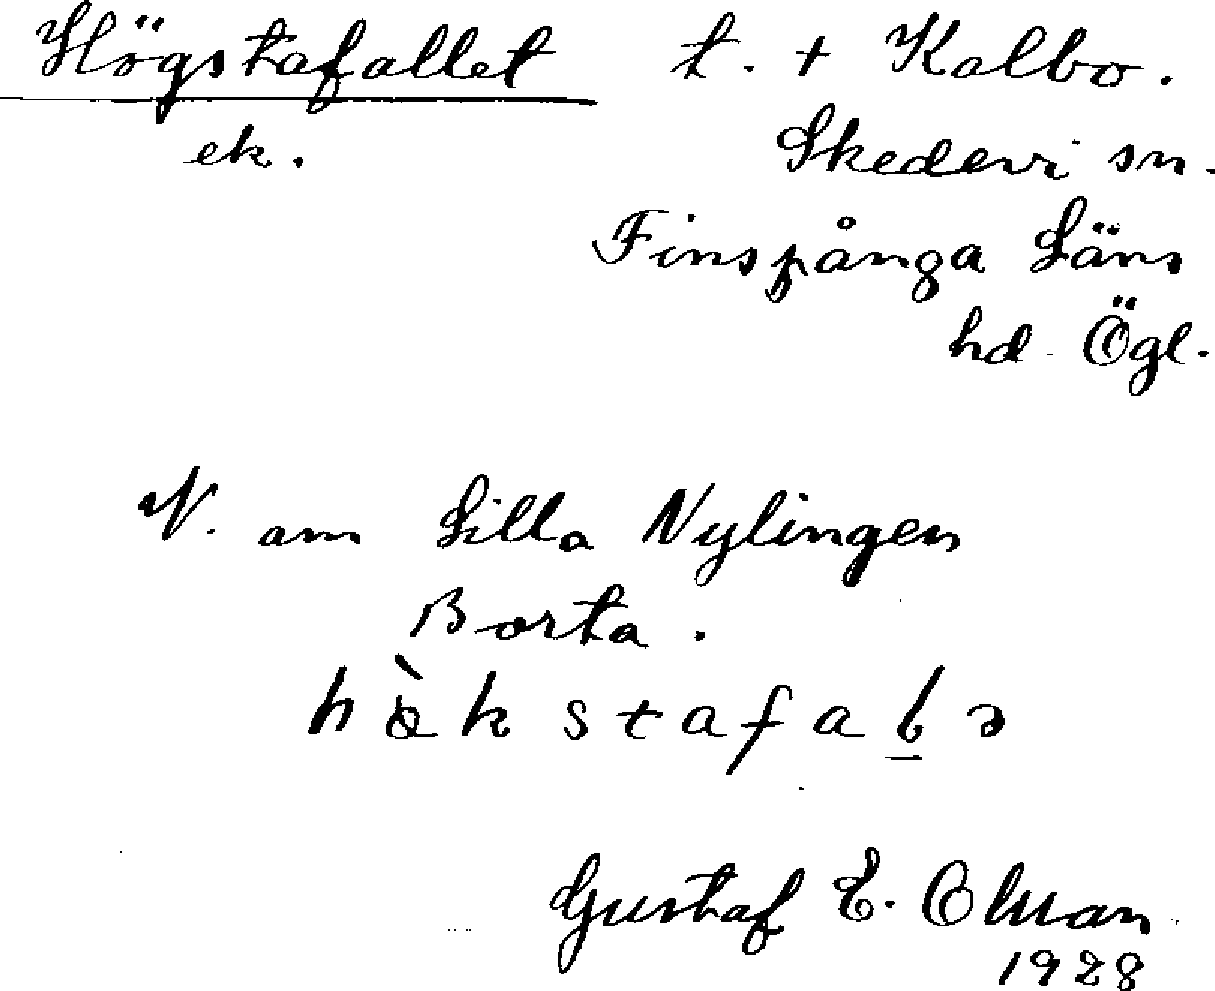 Högstafallet t. + Kalbo.
ek. Skedevi sn.
Finspånga Läns
hd. Ögl.
N. om Lilla Nylingen
Borta.
hò̀kstafaḷə
Gustaf E. Olman
1928